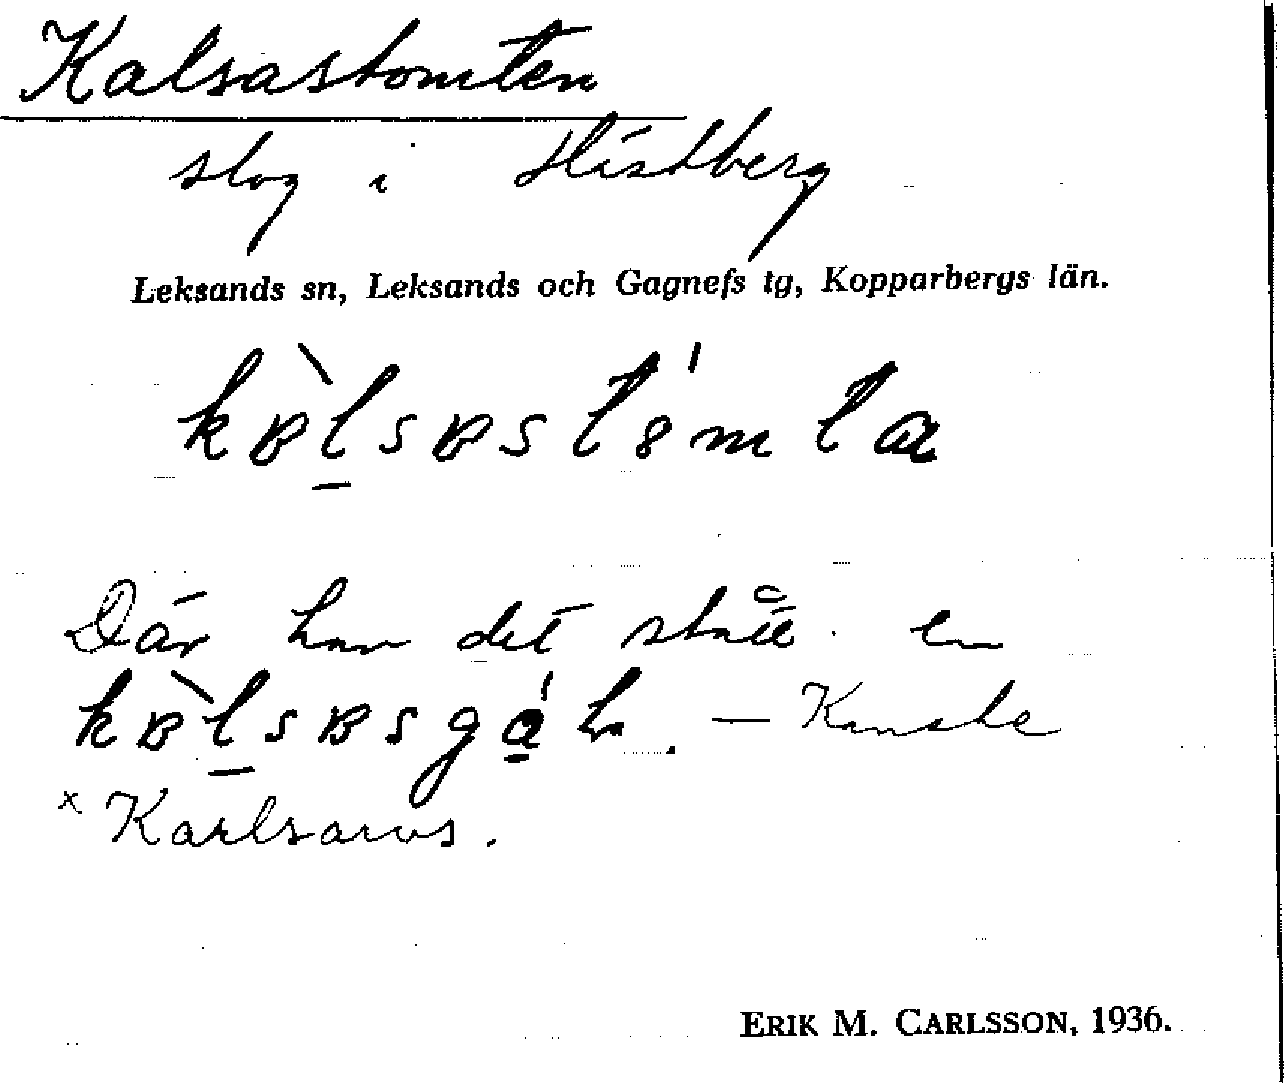 Kalsastomten
slog i Hästberg
Leksands sn, Leksands och Gagnefs tg, Kopparbergs län.
Där har det stått en
— Kanske
x Karlsarvs.
ERIK M. CARLSSON, 1936.